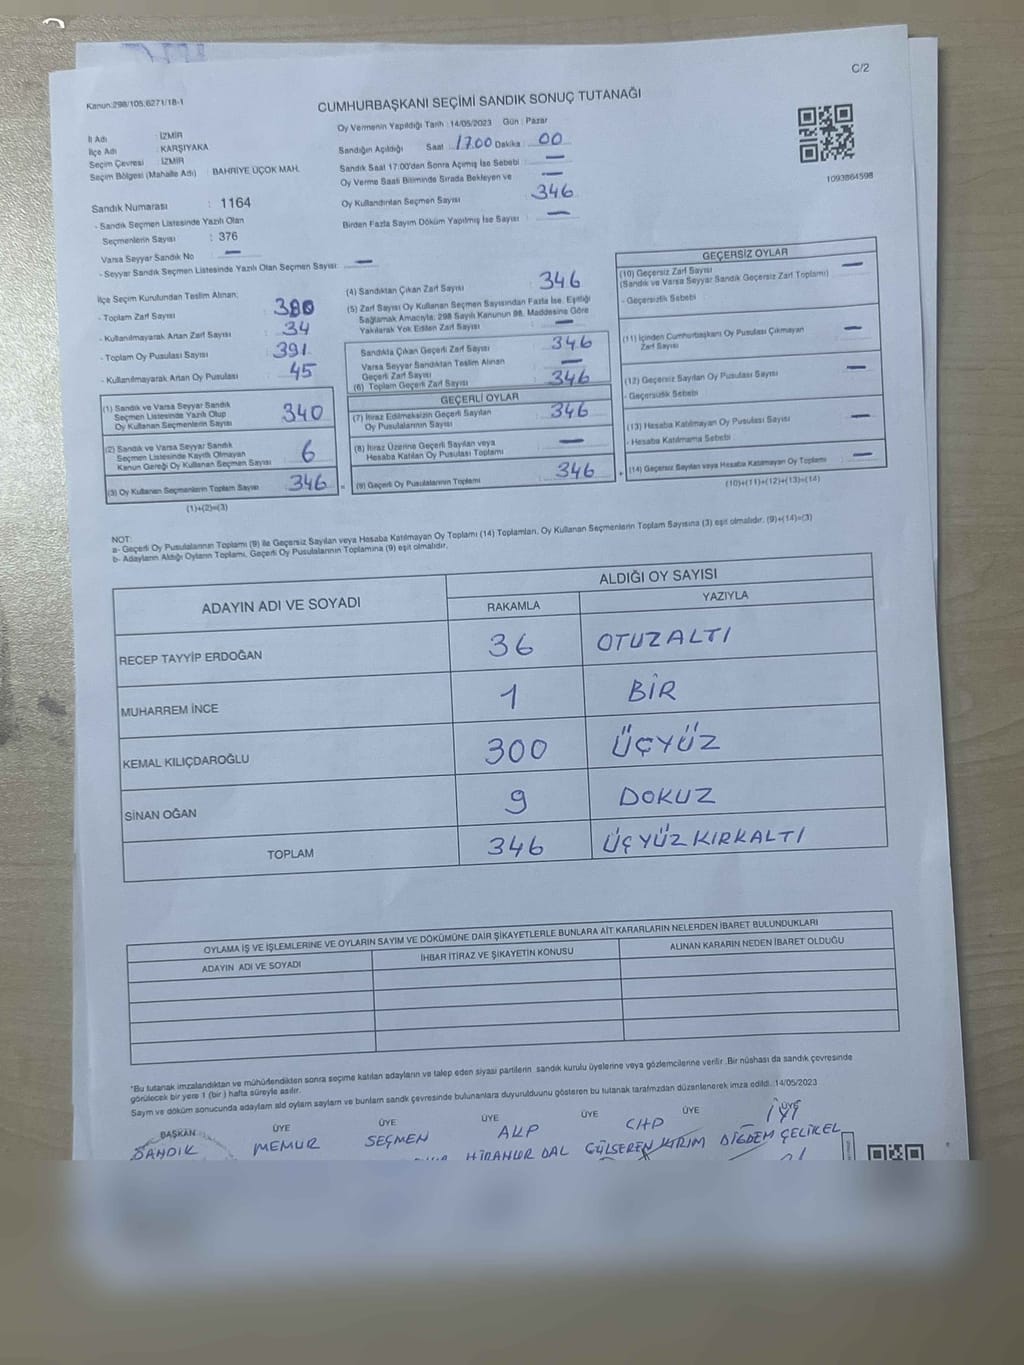 C/2
Kanun:298/105,6271/18-1
CUMHURBAŞKANI SEÇİMİ SANDIK SONUÇ TUTANAĞI
İl Adı : İZMİR
İlçe Adı : KARŞIYAKA
Seçim Çevresi : İZMİR
Seçim Bölgesi (Mahalle Adı) : BAHRİYE ÜÇOK MAH.
Sandık Numarası : 1164
- Sandık Seçmen Listesinde Yazılı Olan
Seçmenlerin Sayısı : 376
Varsa Seyyar Sandık No —
- Seyyar Sandık Seçmen Listesinde Yazılı Olan Seçmen Sayısı: —
Oy Vermenin Yapıldığı Tarih : 14/05/2023 Gün : Pazar
Sandığın Açıldığı Saat 17.00 Dakika : 00
Sandık Saat 17:00'den Sonra Açımış İse Sebebi : —
Oy Verme Saati Bitiminde Sırada Bekleyen ve —
Oy Kullandırılan Seçmen Sayısı : 346
Birden Fazla Sayım Döküm Yapılmış İse Sayısı : —
1093864598
İlçe Seçim Kurulundan Teslim Alınan;
- Toplam Zarf Sayısı : 380
- Kullanılmayarak Artan Zarf Sayısı : 34
- Toplam Oy Pusulası Sayısı : 391
- Kullanılmayarak Artan Oy Pusulası : 45
(1) Sandık ve Varsa Seyyar Sandık
Seçmen Listesinde Yazılı Olup
Oy Kullanan Seçmenlerin Sayısı : 340
(2) Sandık ve Varsa Seyyar Sandık
Seçmen Listesinde Kayıtlı Olmayan
Kanun Gereği Oy Kullanan Seçmen Sayısı : 6
(3) Oy Kullanan Seçmenlerin Toplam Sayısı : 346
(1)+(2)=(3)
(4) Sandıktan Çıkan Zarf Sayısı : 346
(5) Zarf Sayısı Oy Kullanan Seçmen Sayısından Fazla İse, Eşitliği
Sağlamak Amacıyla; 298 Sayılı Kanunun 98. Maddesine Göre
Yakılarak Yok Edilen Zarf Sayısı : —
Sandıkta Çıkan Geçerli Zarf Sayısı : 346
Varsa Seyyar Sandıktan Teslim Alınan
Geçerli Zarf Sayısı : —
(6) Toplam Geçerli Zarf Sayısı : 346
GEÇERLİ OYLAR
(7) İtiraz Edilmeksizin Geçerli Sayılan
Oy Pusulasının Sayısı : 346
(8) İtiraz Üzerine Geçerli Sayılan veya
Hesaba Katılan Oy Pusulası Toplamı : —
(9) Geçerli Oy Pusulalarının Toplamı : 346
GEÇERSİZ OYLAR
(10) Geçersiz Zarf Sayısı : —
(Sandık ve Varsa Seyyar Sandık Geçersiz Zarf Toplamı)
- Geçersizlik Sebebi
(11) İçinden Cumhurbaşkanı Oy Pusulası Çıkmayan
Zarf Sayısı : —
(12) Geçersiz Sayılan Oy Pusulası Sayısı : —
- Geçersizlik Sebebi
(13) Hesaba Katılmayan Oy Pusulası Sayısı : —
- Hesaba Katılmama Sebebi
(14) Geçersiz Sayılan veya Hesaba Katılmayan Oy Toplamı : —
(10)+(11)+(12)+(13)=(14)
NOT:
a- Geçerli Oy Pusulalarının Toplamı (9) ile Geçersiz Sayılan veya Hesaba Katılmayan Oy Toplamı (14) Toplamları, Oy Kullanan Seçmenlerin Toplam Sayısına (3) eşit olmalıdır. (9)+(14)=(3)
b- Adayların Aldığı Oyların Toplamı, Geçerli Oy Pusulalarının Toplamına (9) eşit olmalıdır.
ADAYIN ADI VE SOYADI
ALDIĞI OY SAYISI
RAKAMLA YAZIYLA
RECEP TAYYİP ERDOĞAN 36 OTUZALTI
MUHARREM İNCE 1 BİR
KEMAL KILIÇDAROĞLU 300 ÜÇYÜZ
SİNAN OĞAN 9 DOKUZ
TOPLAM 346 ÜÇYÜZKIRKALTI
OYLAMA İŞ VE İŞLEMLERİNE VE OYLARIN SAYIM VE DÖKÜMÜNE DAİR ŞİKAYETLERLE BUNLARA AİT KARARLARIN NELERDEN İBARET BULUNDUKLARI
ADAYIN ADI VE SOYADI İHBAR İTİRAZ VE ŞİKAYETİN KONUSU ALINAN KARARIN NEDEN İBARET OLDUĞU
*Bu tutanak imzalandıktan ve mühürlendikten sonra seçime katılan adayların ve talep eden siyasi partilerin sandık kurulu üyelerine veya gözlemcilerine verilir .Bir nüshası da sandık çevresinde
görülecek bir yere 1 (bir ) hafta süreyle asılır.
Sayım ve döküm sonucunda adayların ald oyların sayların ve bunların sandk çevresinde bulunanlara duyurulduunu gösteren bu tutanak tarafmzdan düzenlenerek imza edildi. 14/05/2023
BAŞKAN ÜYE ÜYE ÜYE ÜYE ÜYE ÜYE
SANDIK MEMUR SEÇMEN AKP CHP İYİ
HİRANUR DAL GÜLSEREN KIRIM DİĞDEM ÇELİKEL